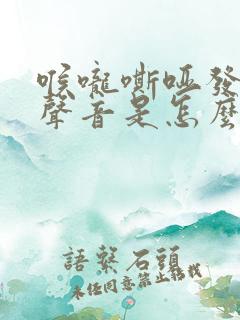 喉嚨嘶啞發
聲音是怎麼
語繫石頭
未經同意禁止轉載